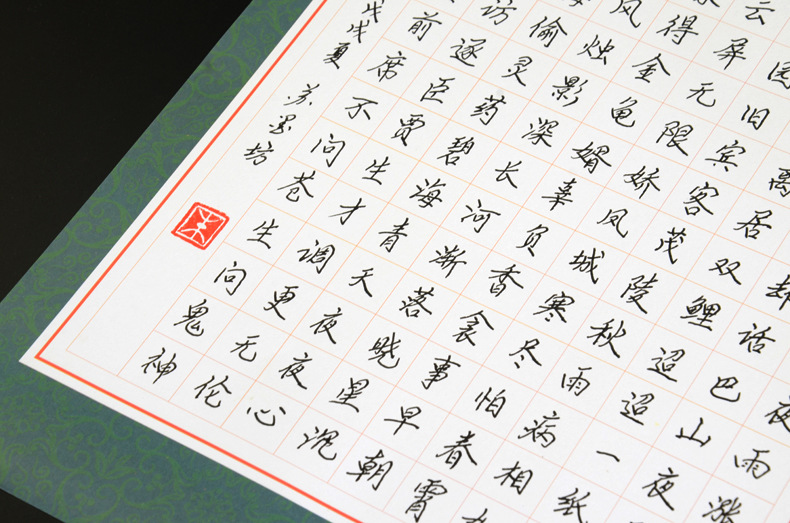 夜雨涨
却话巴山夜
离居双鲤迢迢一纸
园旧宾客茂陵秋雨病相
云屏无限娇凤城寒尽怕春宵
得金龟婿辜负香衾事早朝
风烛影深长河渐落晓星沉
偷灵药碧海青天夜夜心
访逐臣贾生才调更无伦
前席不问苍生问鬼神
戊戌夏 苏墨坊